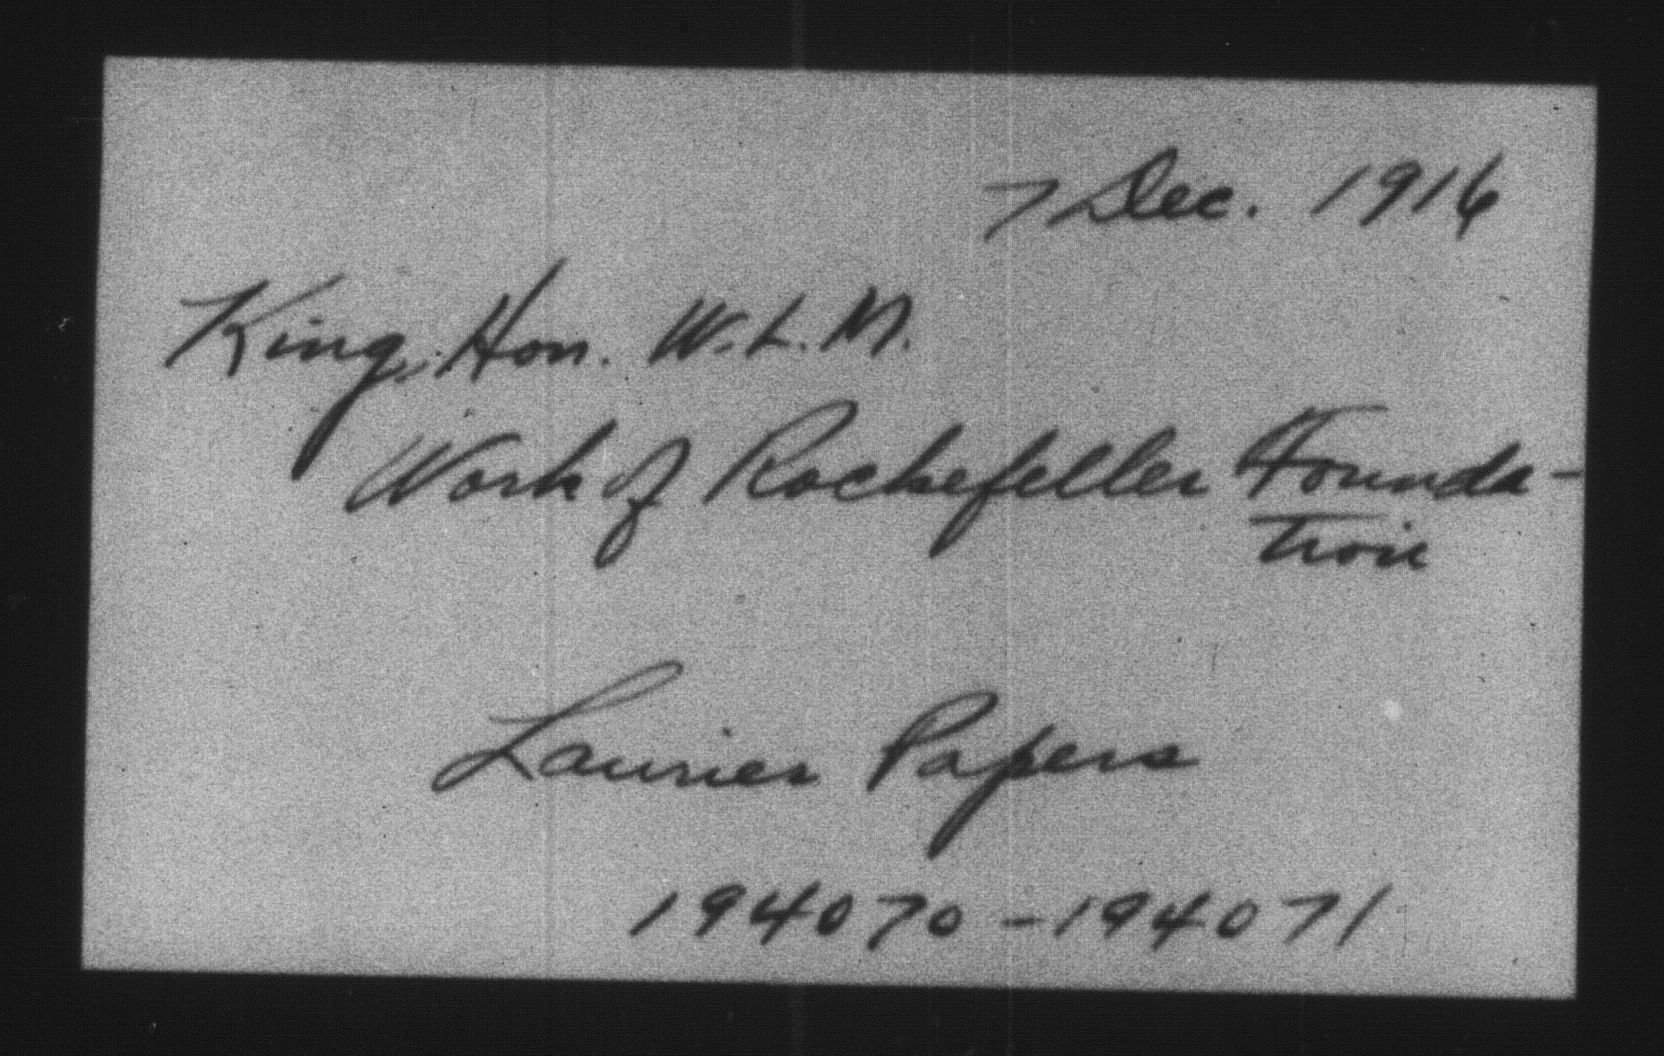 7 Dec. 1916
King, Hon. W.L.M.
Work of Rockefeller Founda-
tion
Laurier Papers
194070-194071